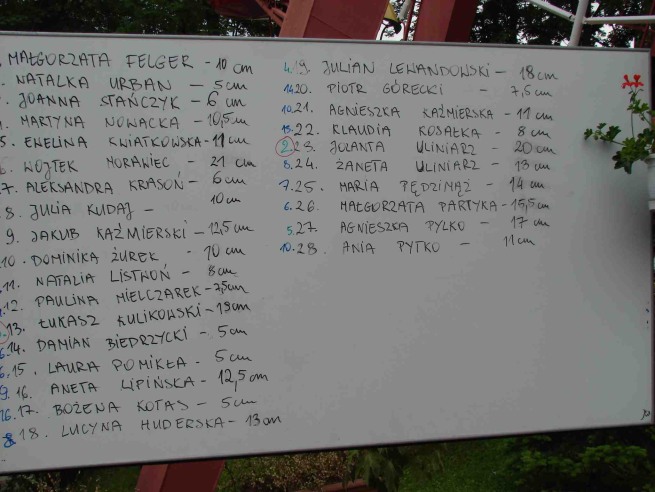 MAŁGORZATA FELGER - 10 cm
NATALKA URBAN - 5 cm
JOANNA STAŃCZYK - 6 cm
MARTYNA NOWACKA - 10,5 cm
5. EWELINA KWIATKOWSKA - 11 cm
WOJTEK MORAWIEC - 21 cm
7. ALEKSANDRA KRASOŃ - 6 cm
8. JULIA KUDAJ - 10 cm
9. JAKUB KAŹMIERSKI - 12,5 cm
10. DOMINIKA ŻUREK - 10 cm
11. NATALIA LISTWOŃ - 8 cm
12. PAULINA MIELCZAREK - 7,5 cm
13. ŁUKASZ KULIKOWSKI - 19 cm
14. DAMIAN BIEDRZYCKI - 5 cm
15. LAURA POMIKŁA - 5 cm
9. 16. ANETA LIPIŃSKA - 12,5 cm
16. 17. BOŻENA KOTAS - 5 cm
8 18. LUCYNA HUDERSKA - 13 cm
4. 19. JULIAN LEWANDOWSKI - 18 cm
14. 20. PIOTR GÓRECKI - 7,5 cm
10. 21. AGNIESZKA KAŹMIERSKA - 11 cm
13. 22. KLAUDIA KOSAŁKA - 8 cm
2 23. JOLANTA ULINIARZ - 20 cm
8. 24. ŻANETA ULINIARZ - 13 cm
7. 25. MARIA PĘDZIWIAŻ - 14 cm
6. 26. MAŁGORZATA PARTYKA - 15,5 cm
5. 27. AGNIESZKA PYTKO - 17 cm
10. 28. ANIA PYTKO - 11 cm